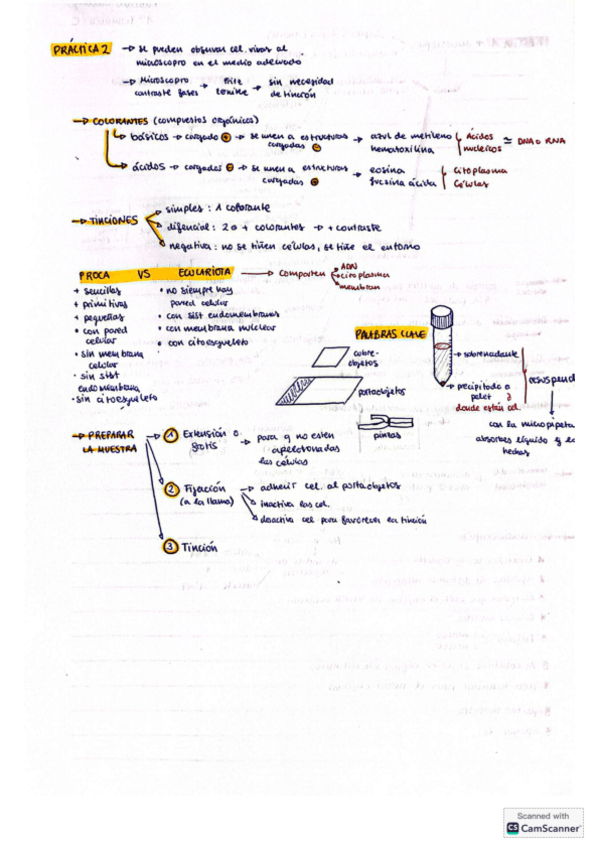 PRÁCTICA 2 → se pueden observar cel. vivas al
microscopro en el medio adecuado
→ Microscopro contraste fases → Brite → sin necesidad de tinción
→ COLORANTES (compuestos orgánicos)
básicos → cargado ⊕ → se unen a estructuras cargadas ⊖ → azul de metileno hematoxilina { Ácidos nucleicos ≃ DNA o RNA
ácidos → cargados ⊖ → se unen a estructuras cargadas ⊕ → eosina fucsina ácida { Citoplasma Células
→ TINCIONES
simples: 1 colorante
difencial: 2 o + colorantes → + contraste
negativa: no se tiñen células, se tiñe el entorno
PROCA VS EUCARIOTA → comparten
ADN
citoplasma
membran
+ sencillas
+ primitivas
+ pequeñas
• con pared celular
• sin membrana celular
• sin sist endomembrana
• sin citoesqueleto
• no siempre hay pared celular
• con sist endomembranas
• con membrana nuclear
• con citoesqueleto
PALABRAS CLAVE
cubre-
objetos
portaobjetos
pinzas
→ sobrenadante
→ precipitado o
pelet
donde están cel.
resuspend
con la micropipeta
absorbes líquido y
hechas
→ PREPARAR
LA MUESTRA
① Extensión o gotis → para q no esten
apelotonadas
las células
② Fijación
(a la llama)
→ adherir cel. al portaobjetos
inactiva las cel.
desactiva cel para favorecer la tinción
③ Tinción
Scanned with
CS CamScanner